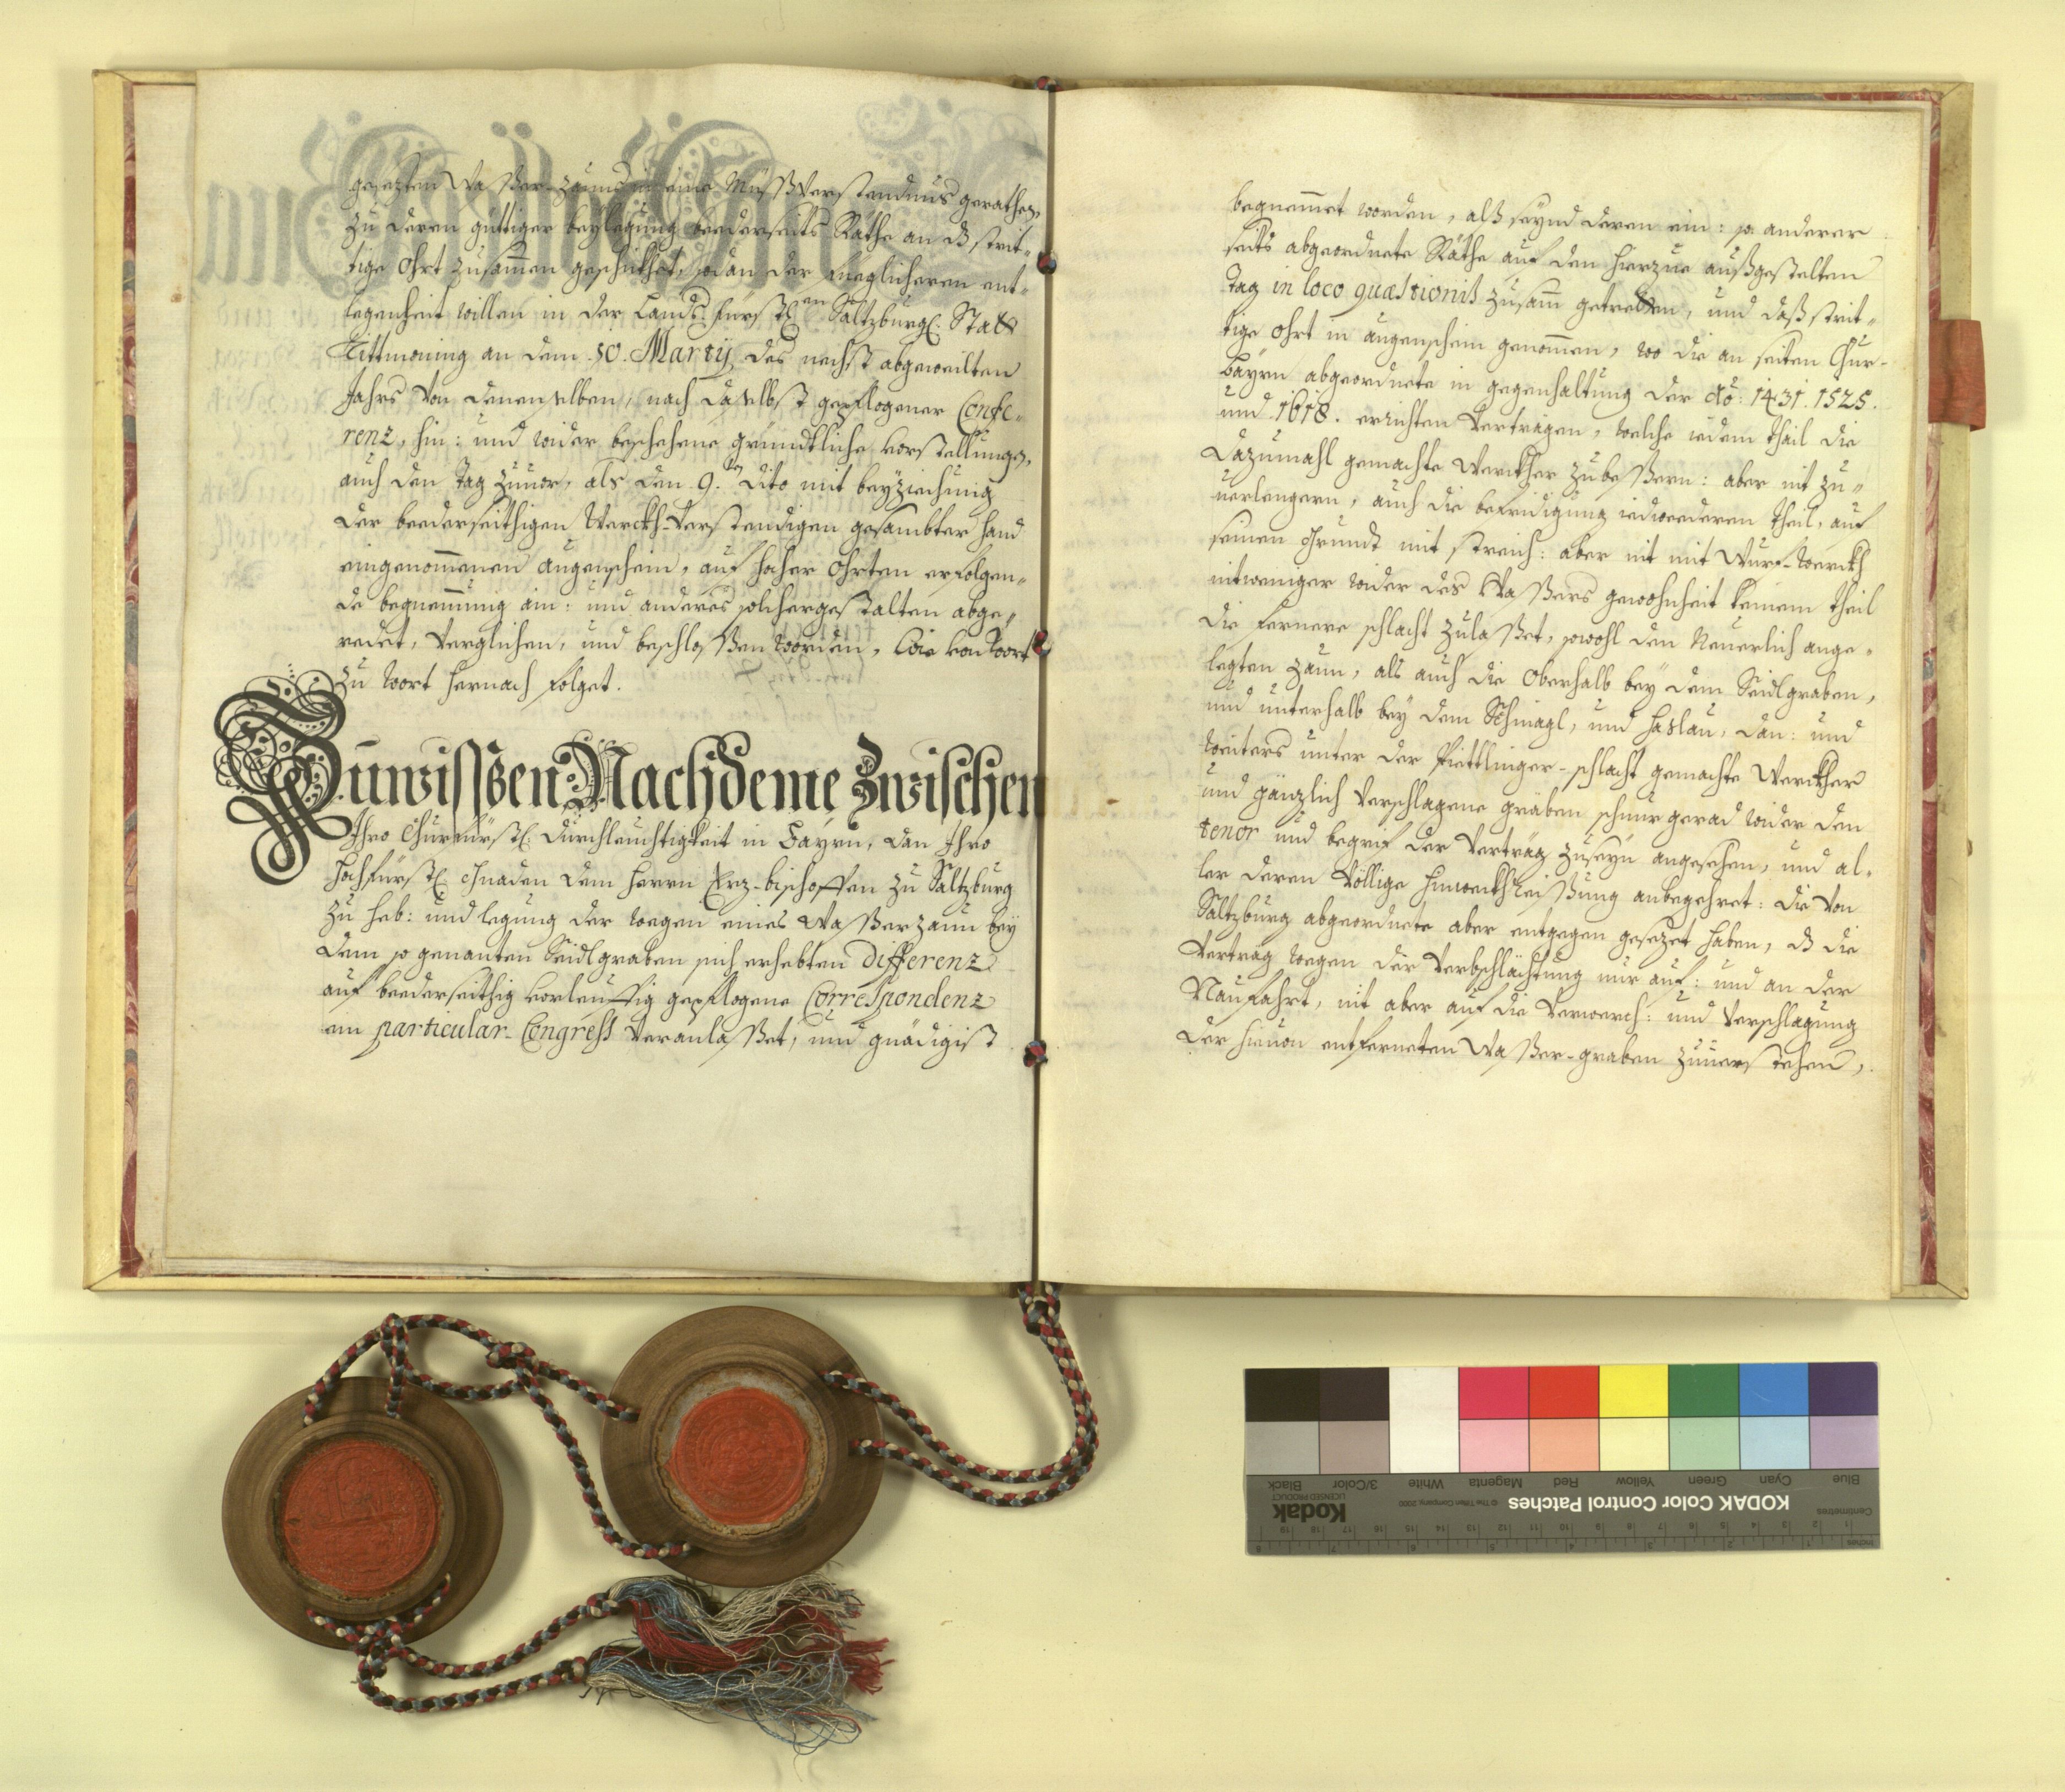 gesezten Wasser-zauns in eine Müßverstendnus gerathen,
zu deren güttiger beylegung beederseits Räthe an dz strit-
tige ohrt zusam̄en geschickhet, sodan der füeglicheren ent-
legenheit willen in der Landsfürstl:en Saltzburgl: Statt
Tittmoning an dem 10. Martij des nechst abgeweilten
Jahrs von denenselben, nach daselbst gepflogener Confe-
renz, hin: und wider beschehene gründtliche vorstellungen,
auch den tag zuuor, als den 9.ten dito mit beyziechung
der beederseithigen Werckh-Verstendigen gesambter hand
eingenom̄enen augenschein, auf hocher ohrten erfolgen-
de begnem̄ung ain: und anderes solchergestalten abge-
redet, verglichen, und beschlossen worden, wie von Wort
zu wort hernach folget.
Zuwissen Nachdeme Zwischen
Ihro Churfürstl: Durchleuchtigkeit in Bayrn, dan Ihro
Hochfürstl: Gnaden dem Herrn Erz-bischoffen zu Saltzburg
zu heb: und legung der wegen eines Wasserzaun bey
dem so genanten Seidlgraben sich erhebten differenz
auf beederseithig vorleuffig gepflogene Correspondenz
ein particular-Congress veranlasset, und gnädigist
begnem̄et worden, alß seynd deren ein: so anderer
seits abgeordnete Räthe auf den hierzue außgestelten
tag in loco quæstionis zusam̄ getretten, und daß strit-
tige ohrt in augenschein genom̄en, wo die an seiten Chur-
bayrn abgeordnete in gegenhaltung der Ao: 1431. 1525.
und 1618. erichten Verträgen, welche iedem theil die
dazumahl gemachte Werckher zubessern: aber nit zu-
uerlengern, auch die befridigung iedwederem theil, auf
seinen grundt mit streich: aber nit mit Wurf-werckh
nitweniger wider des Wassers gewohnheit keinem theil
die fernere schlacht zulasset, sowohl den Neuerlich ange-
legten zaun, als auch die oberhalb bey dem Seidlgraben,
und unterhalb bey dem Schnagl, und haslau, dan: und
weiters unter der Piettlinger-schlacht gemachte Werckher
und gänzlich verschlagene gräben schnur gerad wider den
tenor und begrif der Verträg zuseyn angesehen, und al-
ler deren völlige hinweckhreissung anbegehret: die von
Saltzburg abgeordnete aber entgegen gesezet haben, dz die
Verträg wegen der Verbschlächtung nur auf: und an der
Naufahrt, nit aber auf die Verwerch: und Verschlagung
der hieuon entferneten Wasser-graben zuuerstehen,
KODAK Color Control Patches
Kodak
LICENSED PRODUCT
© The Tiffen Company, 2000
Blue Cyan Green Yellow Red Magenta White 3/Color Black
Centimetres
Inches